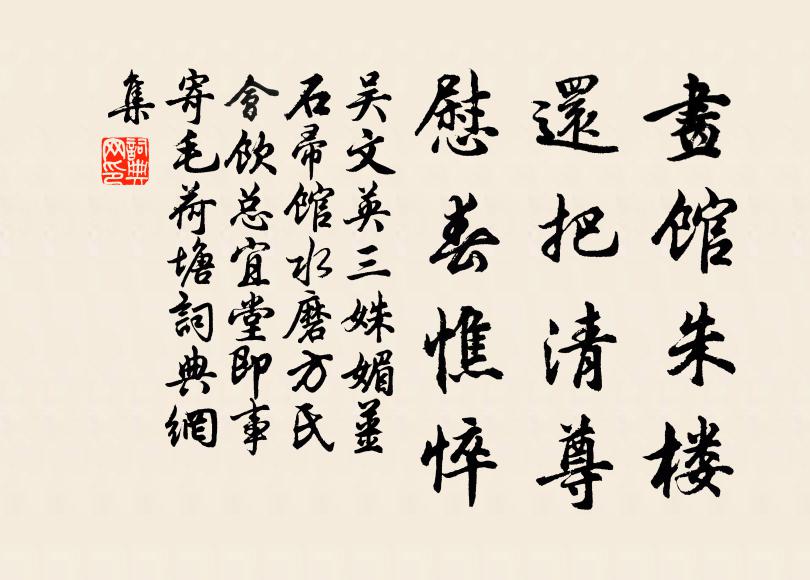 畫館朱楼
還把清尊
慰春憔悴
吴文英三姝媚薑
石帚館水磨方氏
會飲总宜堂即事
寄毛荷塘詞典網
集
詞典
网印